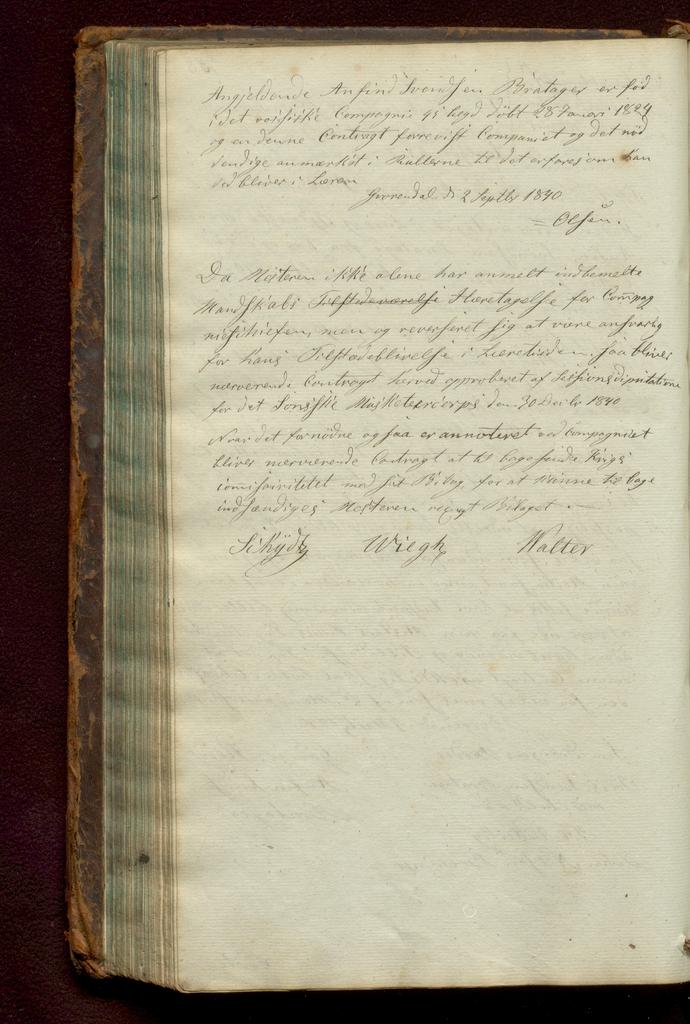 Angjeldende Anfind Svendsen Bratager er fød
i det vossiske Compagnie døbt 28 Januari 1824
og er denne Contragt forrevist Companiet og det nød
vendige anmærkst i Rullerne til det erfares om han
ved bliver i Læren
d 2 Septbr 1840
Olsen.
Da Mesteren ikke alene har anmelt indbemelte
Mandskabs Tilstedeværelse for Compag
nieschefen, men og reverseret sig at være ansvarlig
for hans Tilstædeblivelse i Læretiden, saa bliver
nærværende Contragt herved approberet af Sessionsdiputationen
for det Musketeercorps den 30 Decbr 1840
Naar det fornødne ogsaa er annoteret ved Compagniet
bliver nærværende Contragt at til bagesende Krigs
comissiritetet med sit Bilag for at kunne til bage
indsændiges Mesteren Bilaget
Wiegh Walter